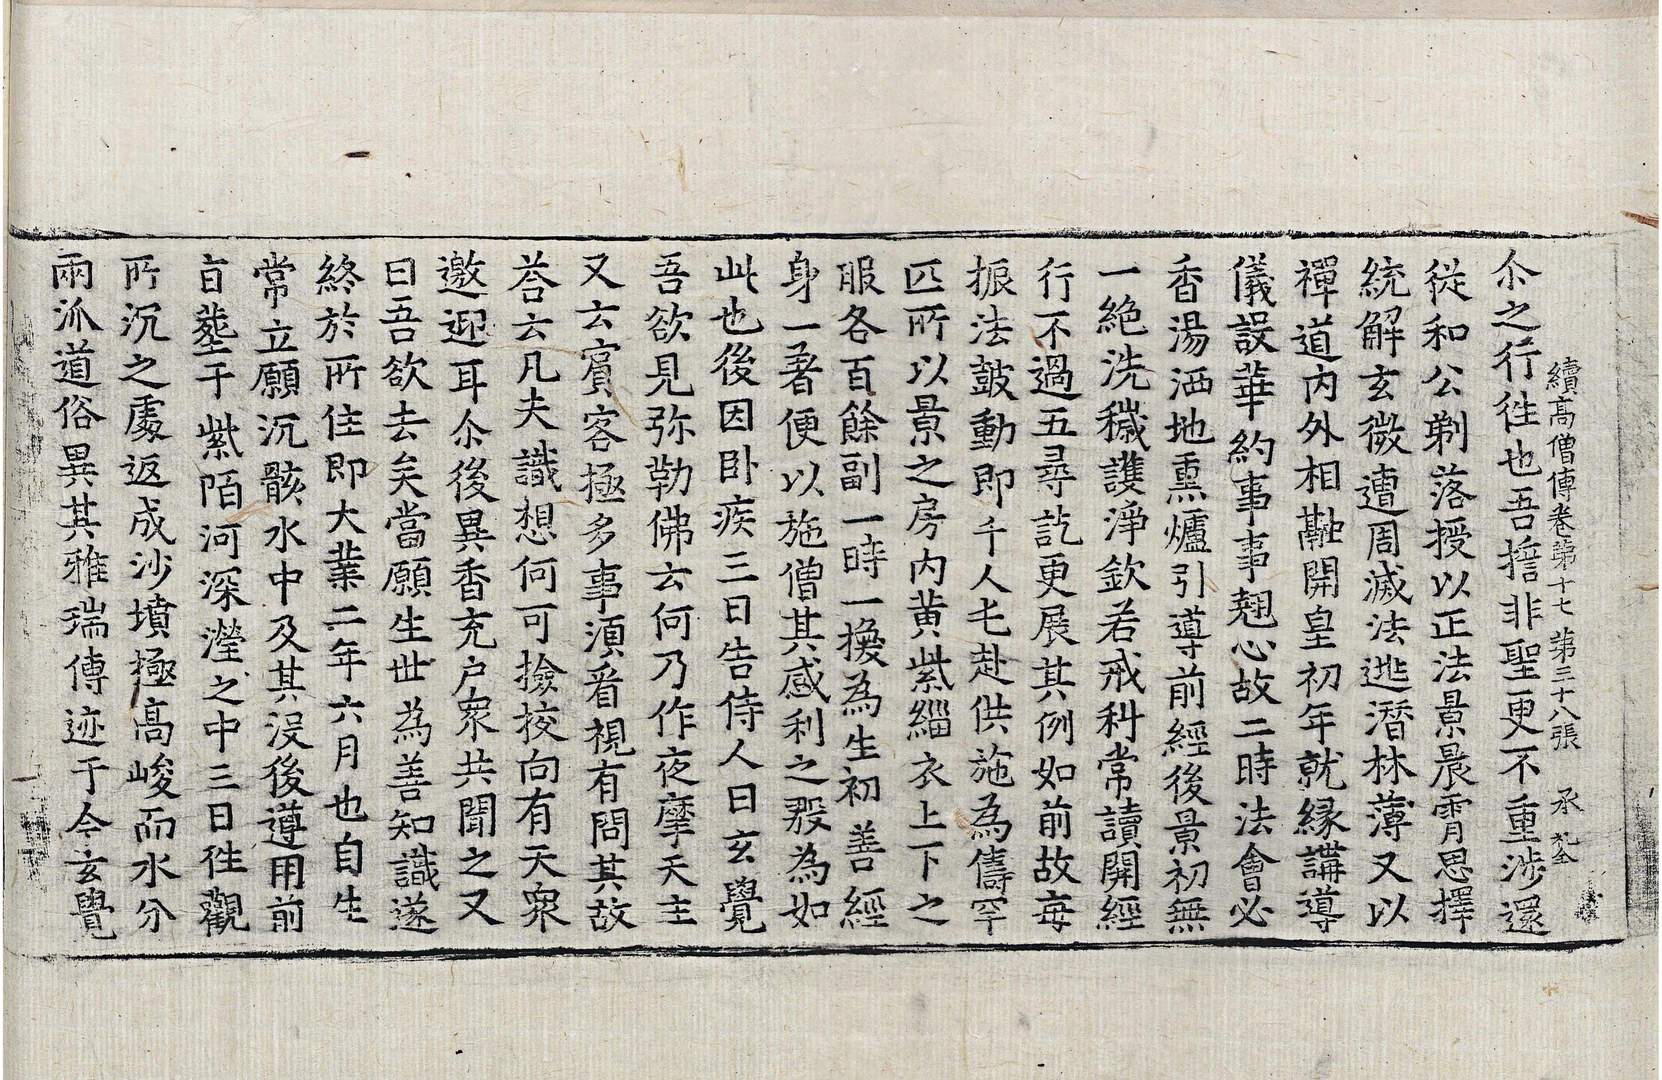 續高僧傳卷第十七 第三十八張 承
尒之行徃也吾誓非聖更不重涉還
從和公剃落授以正法景晨宵思擇
統解玄微遭周滅法逃潛林薄又以
禪道內外相融開皇初年就緣講導
儀設華約事事翹心故二時法會必
香湯洒地熏爐引導前經後景初無
一絕洗穢護淨欽若戒科常讀開經
行不過五尋訖更展其例如前故每
振法鼓動即千人屯赴供施為儔罕
匹所以景之房內黃紫緇衣上下之
服各百餘副一時一換為生初善經
身一著便以施僧其感利之殷為如
此也後因卧疾三日告侍人曰玄覺
吾欲見弥勒佛云何乃作夜摩天主
又云賓客極多事須看視有問其故
荅云凡夫識想何可撿挍向有天眾
邀迎耳尒後異香充户眾共聞之又
曰吾欲去矣當願生世為善知識遂
終於所住即大業二年六月也自生
常立願沉骸水中及其没後遵用前
旨葬于紫陌河深瀅之中三日徃觀
所沉之處返成沙墳極高峻而水分
兩派道俗異其雅瑞傳迹于今玄覺